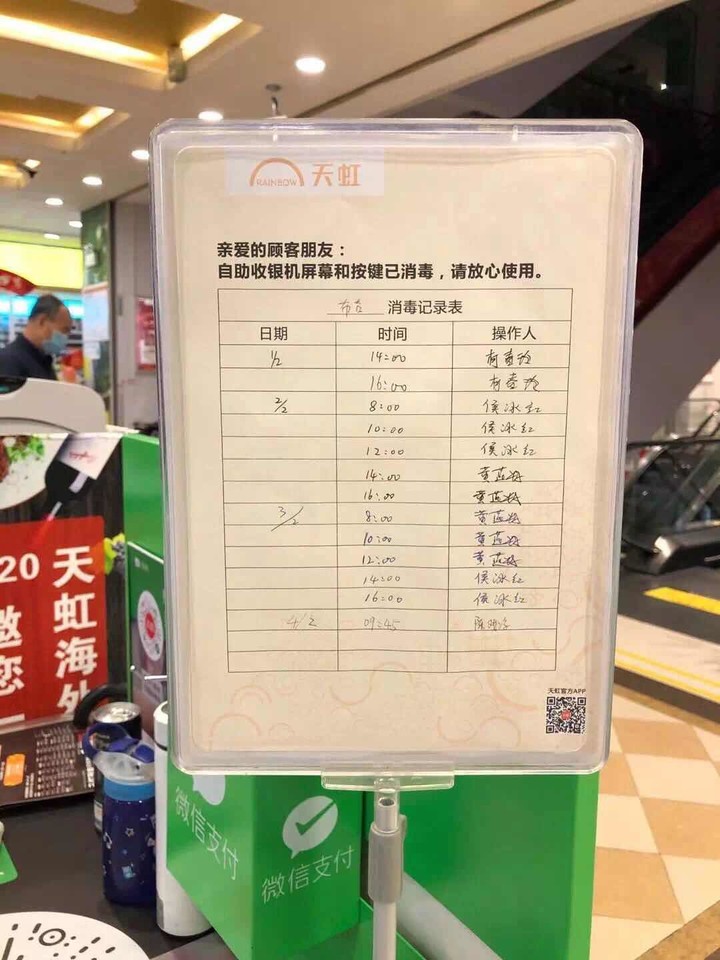 RAINBOW 天虹
亲爱的顾客朋友：
自助收银机屏幕和按键已消毒，请放心使用。
消毒记录表
日期 时间 操作人
1/2 14:00
16:00
2/2 8:00 侯冰红
10:00 侯冰红
12:00 侯冰红
14:00 黄蓝
16:00 黄蓝
3/2 8:00 黄蓝
10:00 黄蓝
12:00 黄蓝
14:00 侯冰红
16:00 侯冰红
4/2 09:45
天虹官方APP
20
天虹海外
邀您一
微信支付
微信支付